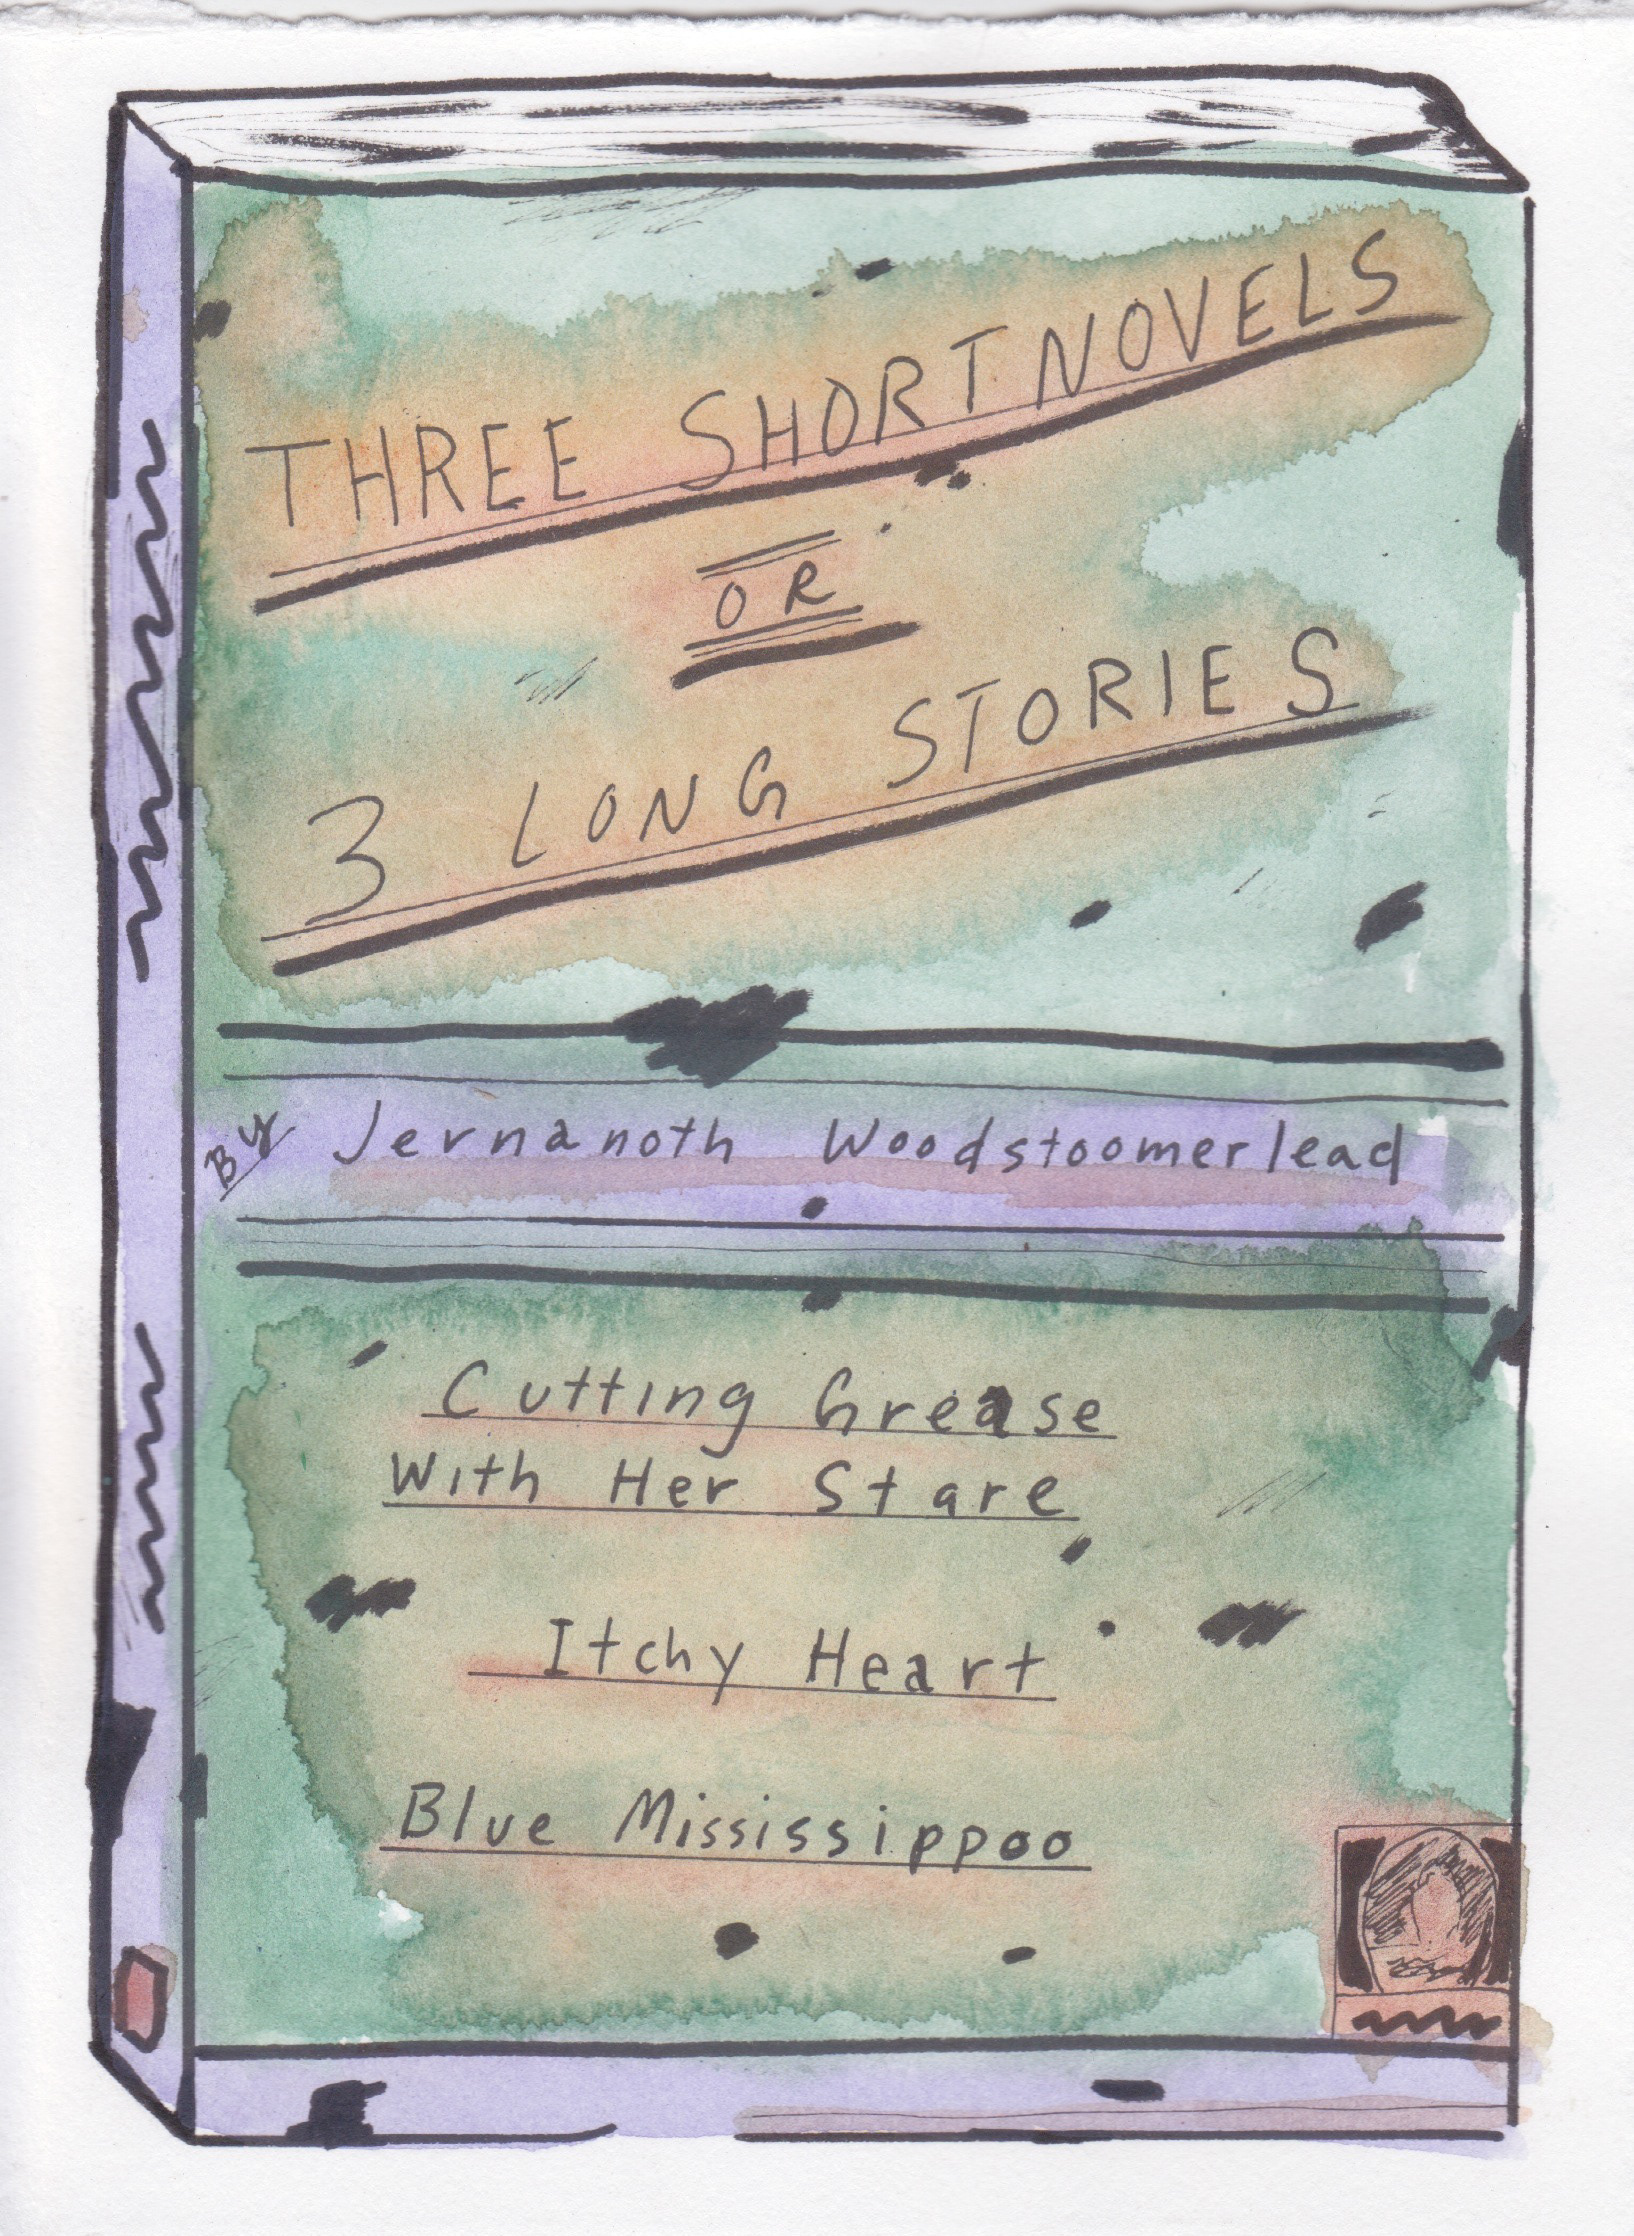 THREE SHORT NOVELS
OR
3 LONG STORIES
By Jernanoth Woodstoomerlead
Cutting Grease
With Her Stare
Itchy Heart
Blue Mississippoo